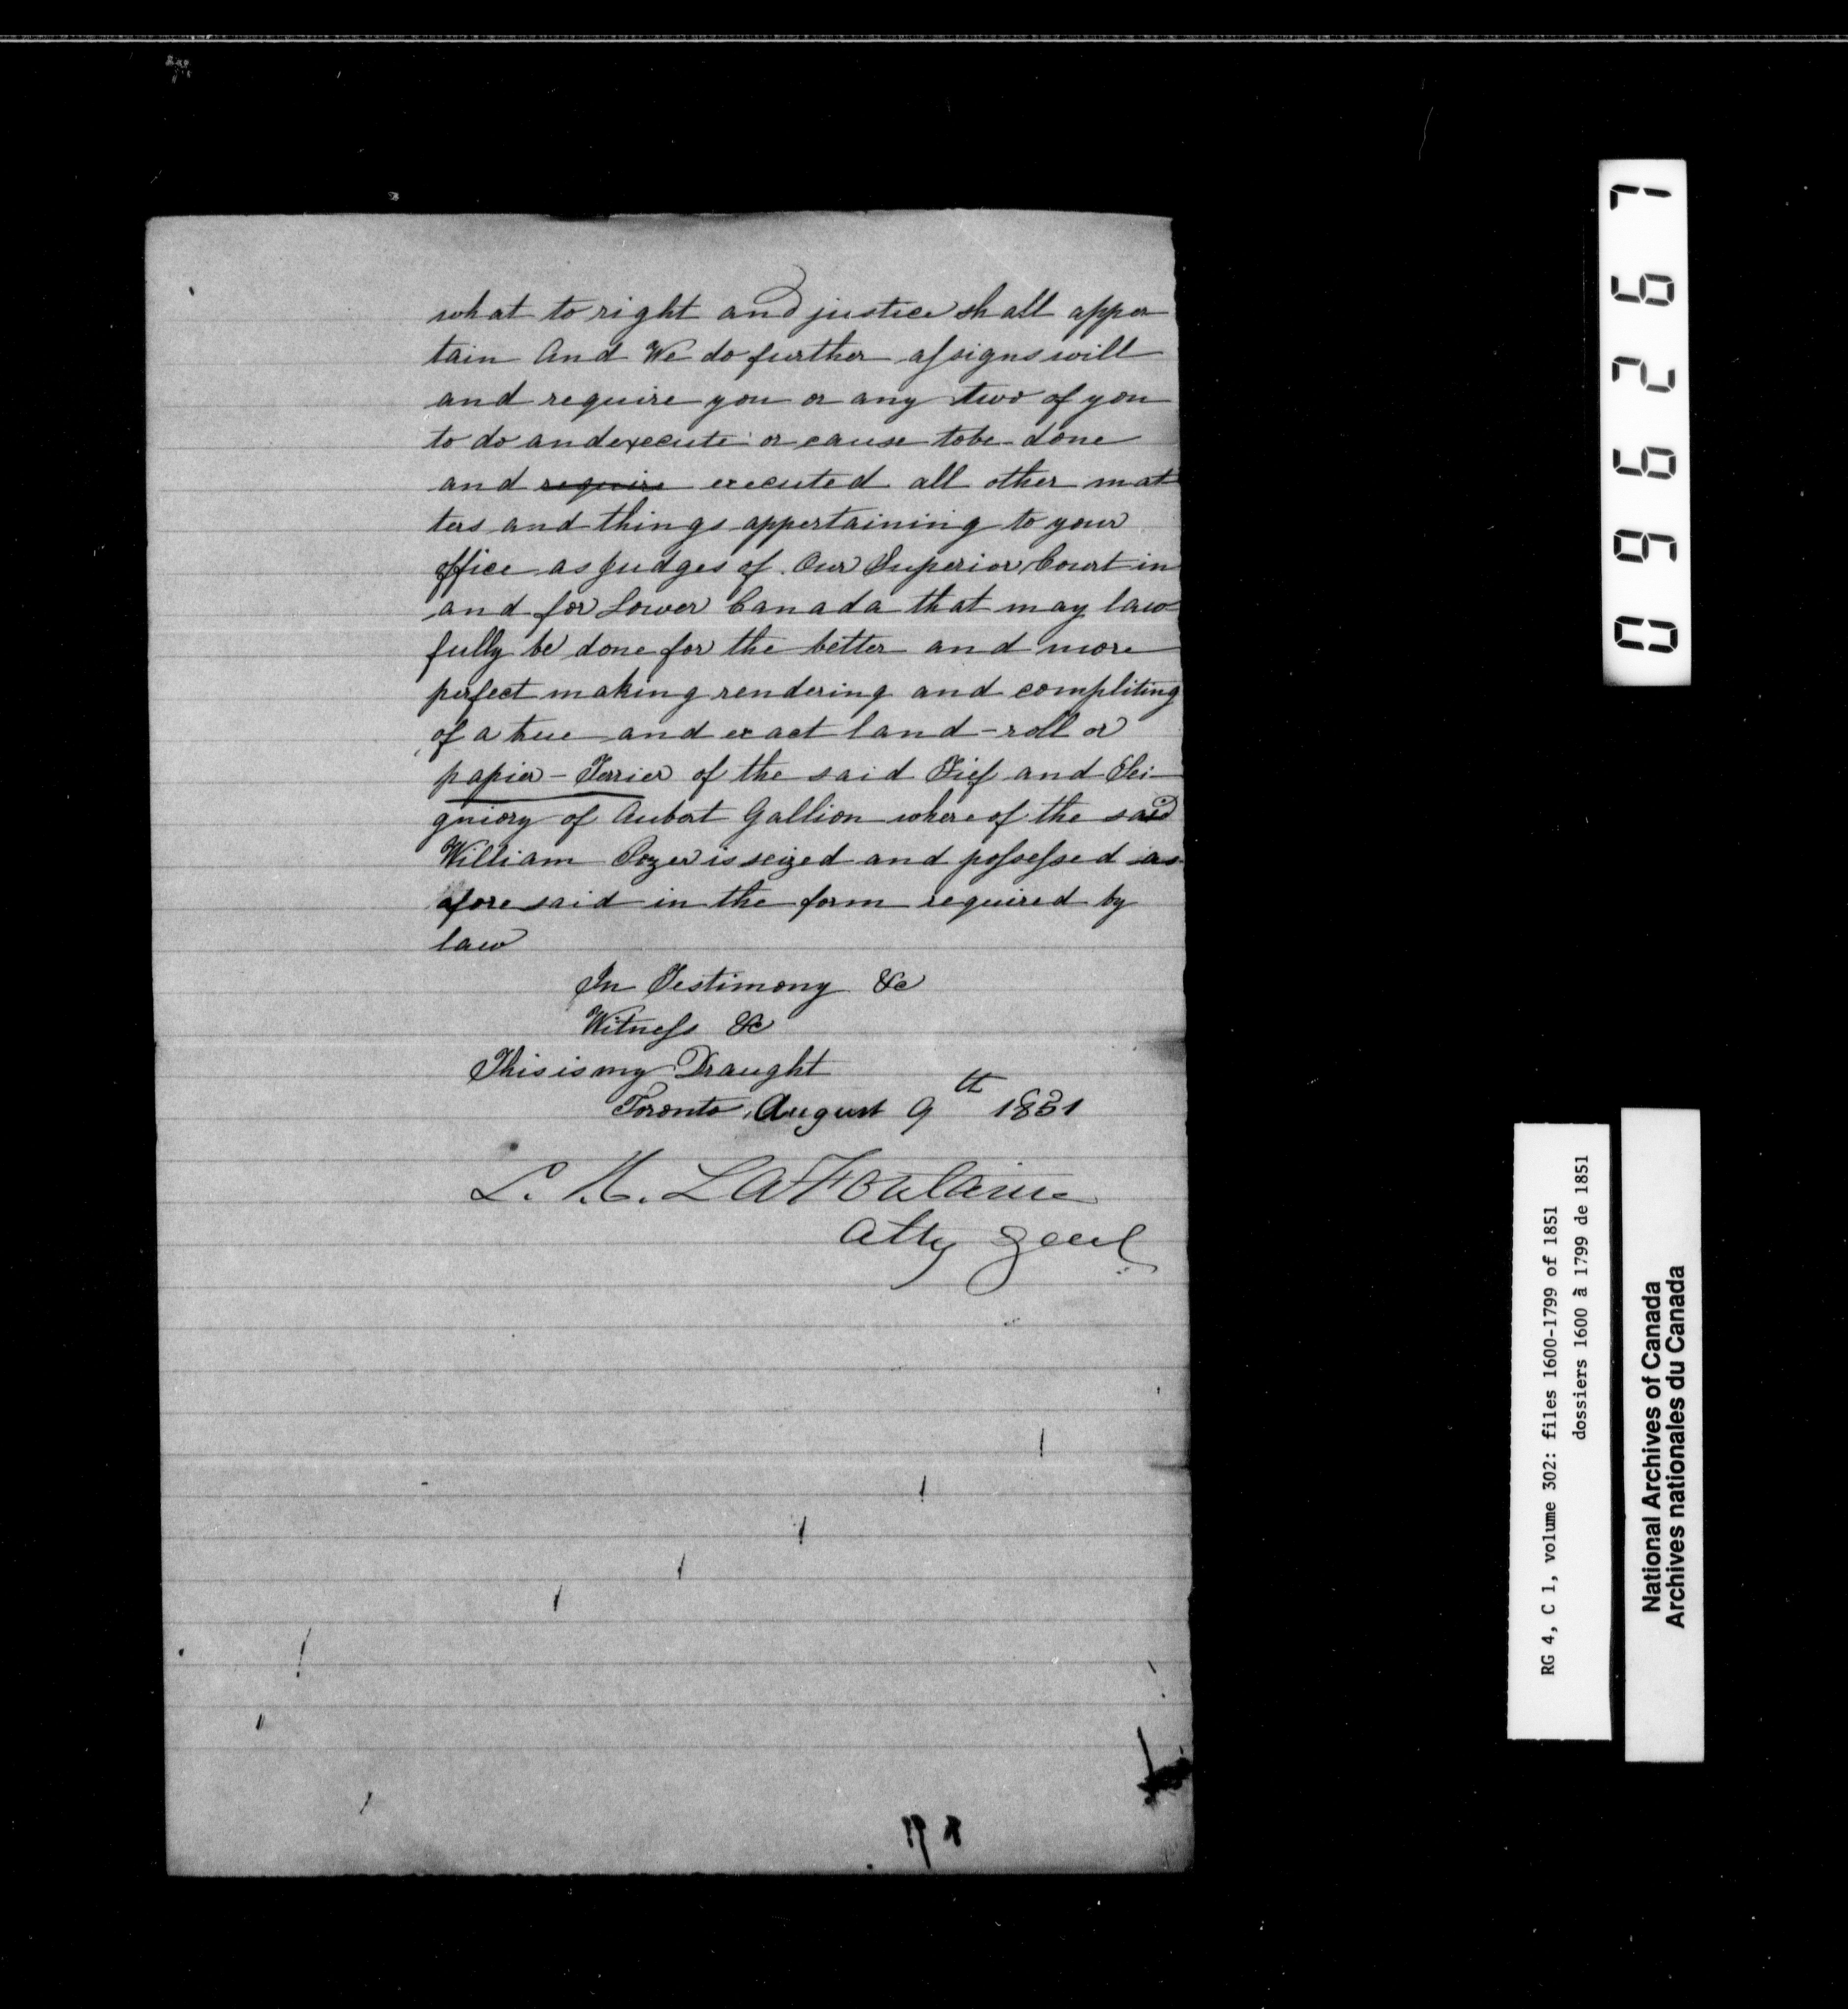 what to right and justice shall apper
tain And We do further assigns will
and require you or any two of you
to do and execute or cause to be done
and require executed all other mat
ters and things appertaining to your
office as Judges of Our Superior Court in
and for Lower Canada that may law
fully be done for the better and more
perfect making rendering and compliting
of a true and exact land-roll or
papier-Terrier of the said Fief and Sei-
gniory of Aubert Gallion whereof the said
William Pozer is seized and possessed as
afore said in the form required by
law
In Testimony &c
Witness &c
This is my Draught
Toronto, August 9th 1851
L. H. LaFontaine
Atty Genl
096267
RG 4, C 1, volume 302: files 1600-1799 of 1851
dossiers 1600 à 1799 de 1851
National Archives of Canada
Archives nationales du Canada